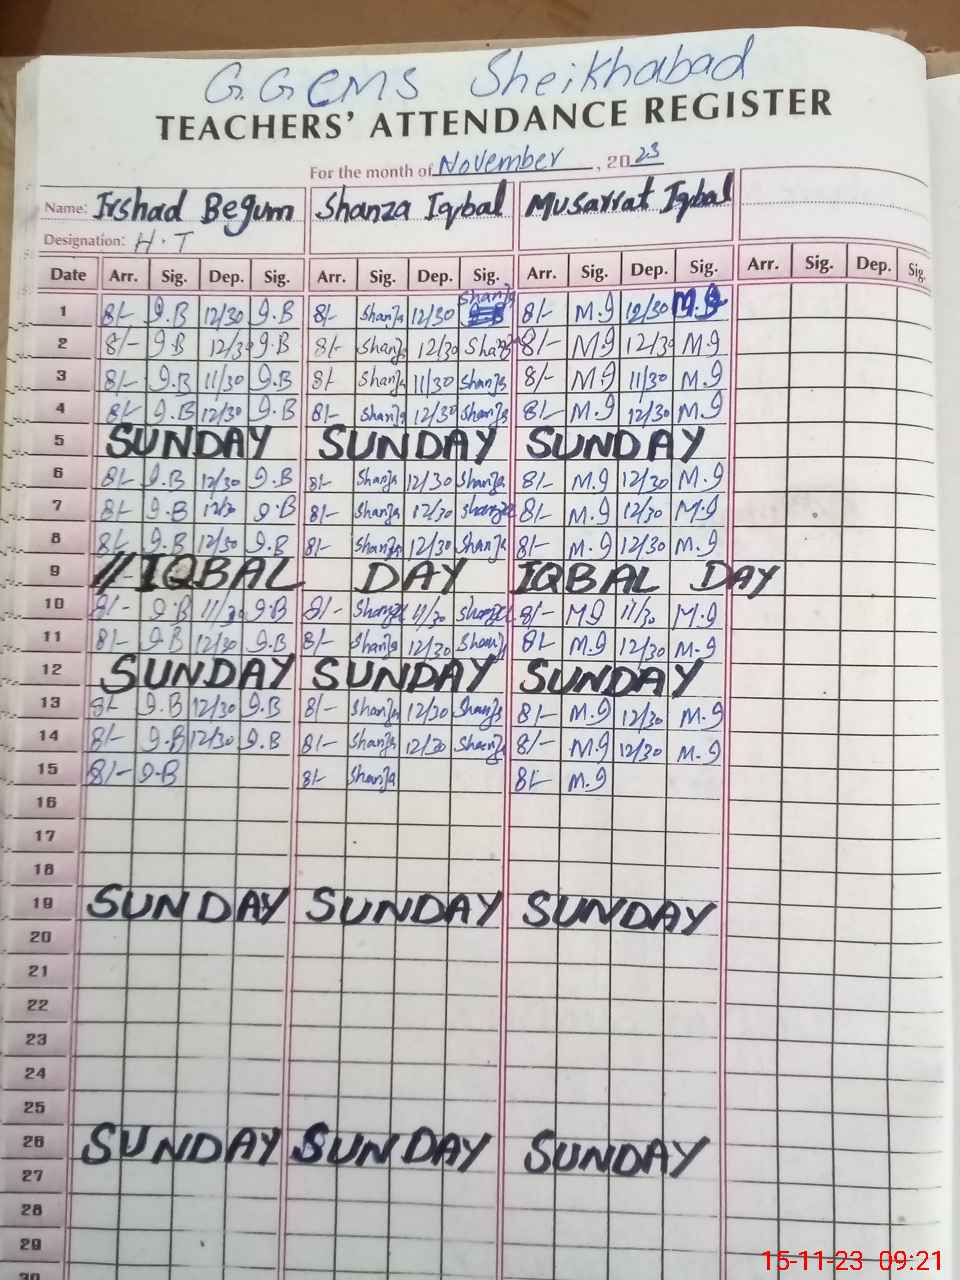 G.G CMS Sheikhabad
TEACHERS' ATTENDANCE REGISTER
For the month of November, 2023
Name: Irshad Begum Shanza Iqbal Musarrat Iqbal
Designation: H.T
Date Arr. Sig. Dep. Sig. Arr. Sig. Dep. Sig. Arr. Sig. Dep. Sig. Arr. Sig. Dep. Sig.
1 8/- I.B 12/30 I.B 8/- Shanza 12/30 Shanza 8/- M.I 12/30 M.I
2 8/- I.B 12/30 I.B 8/- Shanza 12/30 Shanza 8/- M.I 12/30 M.I
3 8/- I.B 11/30 I.B 8/- Shanza 11/30 Shanza 8/- M.I 11/30 M.I
4 8/- I.B 12/30 I.B 8/- Shanza 12/30 Shanza 8/- M.I 12/30 M.I
5 SUNDAY SUNDAY SUNDAY
6 8/- I.B 12/30 I.B 8/- Shanza 12/30 Shanza 8/- M.I 12/30 M.I
7 8/- I.B 12/30 I.B 8/- Shanza 12/30 Shanza 8/- M.I 12/30 M.I
8 8/- I.B 12/30 I.B 8/- Shanza 12/30 Shanza 8/- M.I 12/30 M.I
9 IQBAL DAY IQBAL DAY
10 8/- I.B 11/30 I.B 8/- Shanza 11/30 Shanza 8/- M.I 11/30 M.I
11 8/- I.B 12/30 I.B 8/- Shanza 12/30 Shanza 8/- M.I 12/30 M.I
12 SUNDAY SUNDAY SUNDAY
13 8/- I.B 12/30 I.B 8/- Shanza 12/30 Shanza 8/- M.I 12/30 M.I
14 8/- I.B 12/30 I.B 8/- Shanza 12/30 Shanza 8/- M.I 12/30 M.I
15 8/- I.B 8/- Shanza 8/- M.I
16
17
18
19 SUNDAY SUNDAY SUNDAY
20
21
22
23
24
25
26 SUNDAY SUNDAY SUNDAY
27
28
29
30
15-11-23 09:21